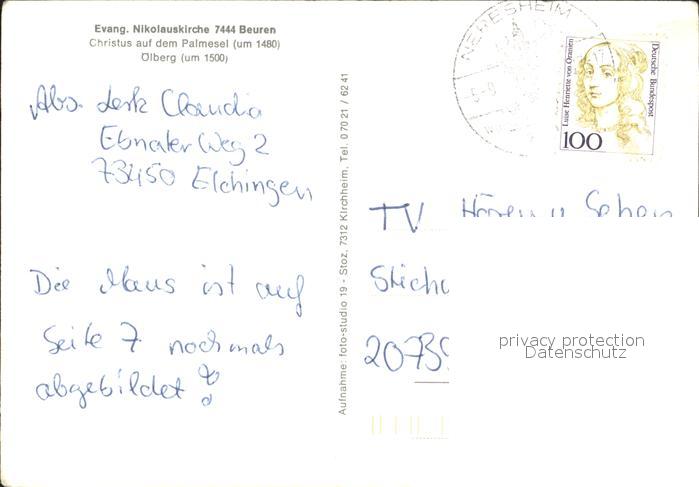 Evang. Nikolauskirche 7444 Beuren
Christus auf dem Palmesel (um 1480)
Ölberg (um 1500)
Abs. Claudia
Ebnater Weg 2
73450 Elchingen
Die Maus ist auf
Seite 7 nochmals
abgebildet!
Aufnahme: foto-studio 19 - Stoz, 7312 Kirchheim, Tel. 07021 / 6241
NERESHEIM
Luise Henriette von Oranien
Deutsche Bundespost
100
TV Hören u Sehen
privacy protection
Datenschutz